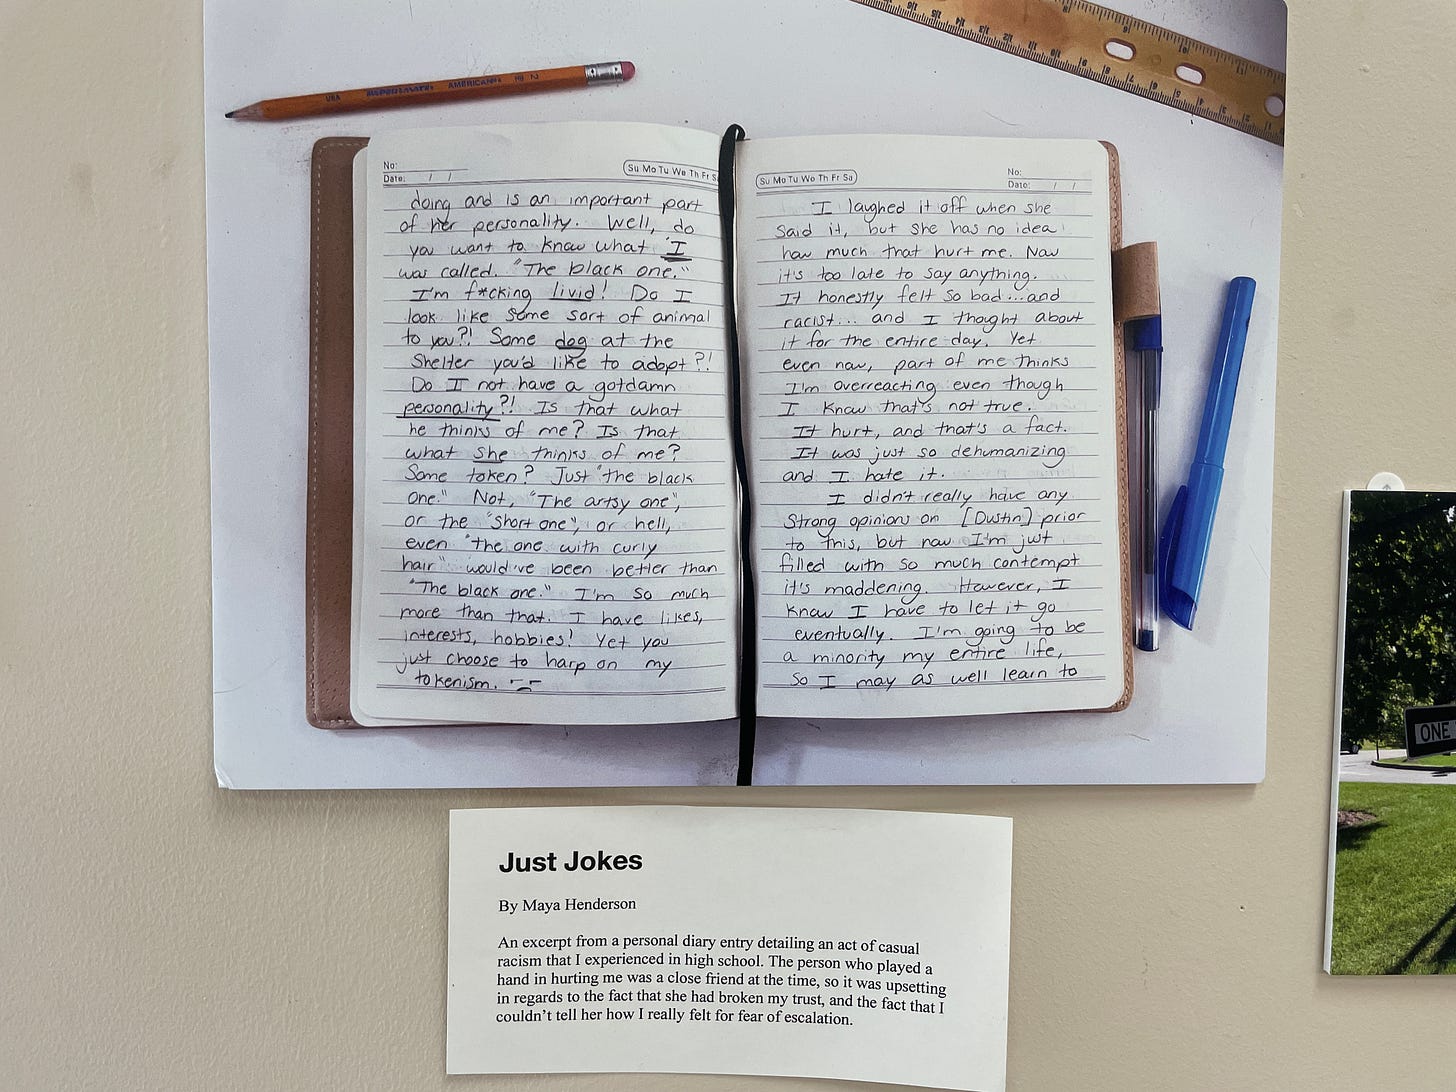 USA PAPERMATE AMERICAN HB 2
No:
Date: / /
Su Mo Tu We Th Fr Sa
doing and is an important part
of her personality. Well, do
you want to know what "I
was called. "The black one."
I'm f*cking livid! Do I
look like some sort of animal
to you?! Some dog at the
shelter you'd like to adopt?!
Do I not have a gotdamn
personality?! Is that what
he thinks of me? Is that
what she thinks of me?
Some token? Just "the black
one." Not, "The artsy one",
or the "short one", or hell,
even "the one with curly
hair" would've been better than
"The black one." I'm so much
more than that. I have likes,
interests, hobbies! Yet you
just choose to harp on my
tokenism. -_-
Su Mo Tu We Th Fr Sa
No:
Date: / /
I laughed it off when she
said it, but she has no idea
how much that hurt me. Now
it's too late to say anything.
It honestly felt so bad...and
racist... and I thought about
it for the entire day. Yet
even now, part of me thinks
I'm overreacting even though
I know that's not true.
It hurt, and that's a fact.
It was just so dehumanizing
and I hate it.
I didn't really have any
strong opinions on [Dustin] prior
to this, but now I'm just
filled with so much contempt
it's maddening. However, I
know I have to let it go
eventually. I'm going to be
a minority my entire life,
so I may as well learn to
ONE
Just Jokes
By Maya Henderson
An excerpt from a personal diary entry detailing an act of casual
racism that I experienced in high school. The person who played a
hand in hurting me was a close friend at the time, so it was upsetting
in regards to the fact that she had broken my trust, and the fact that I
couldn't tell her how I really felt for fear of escalation.